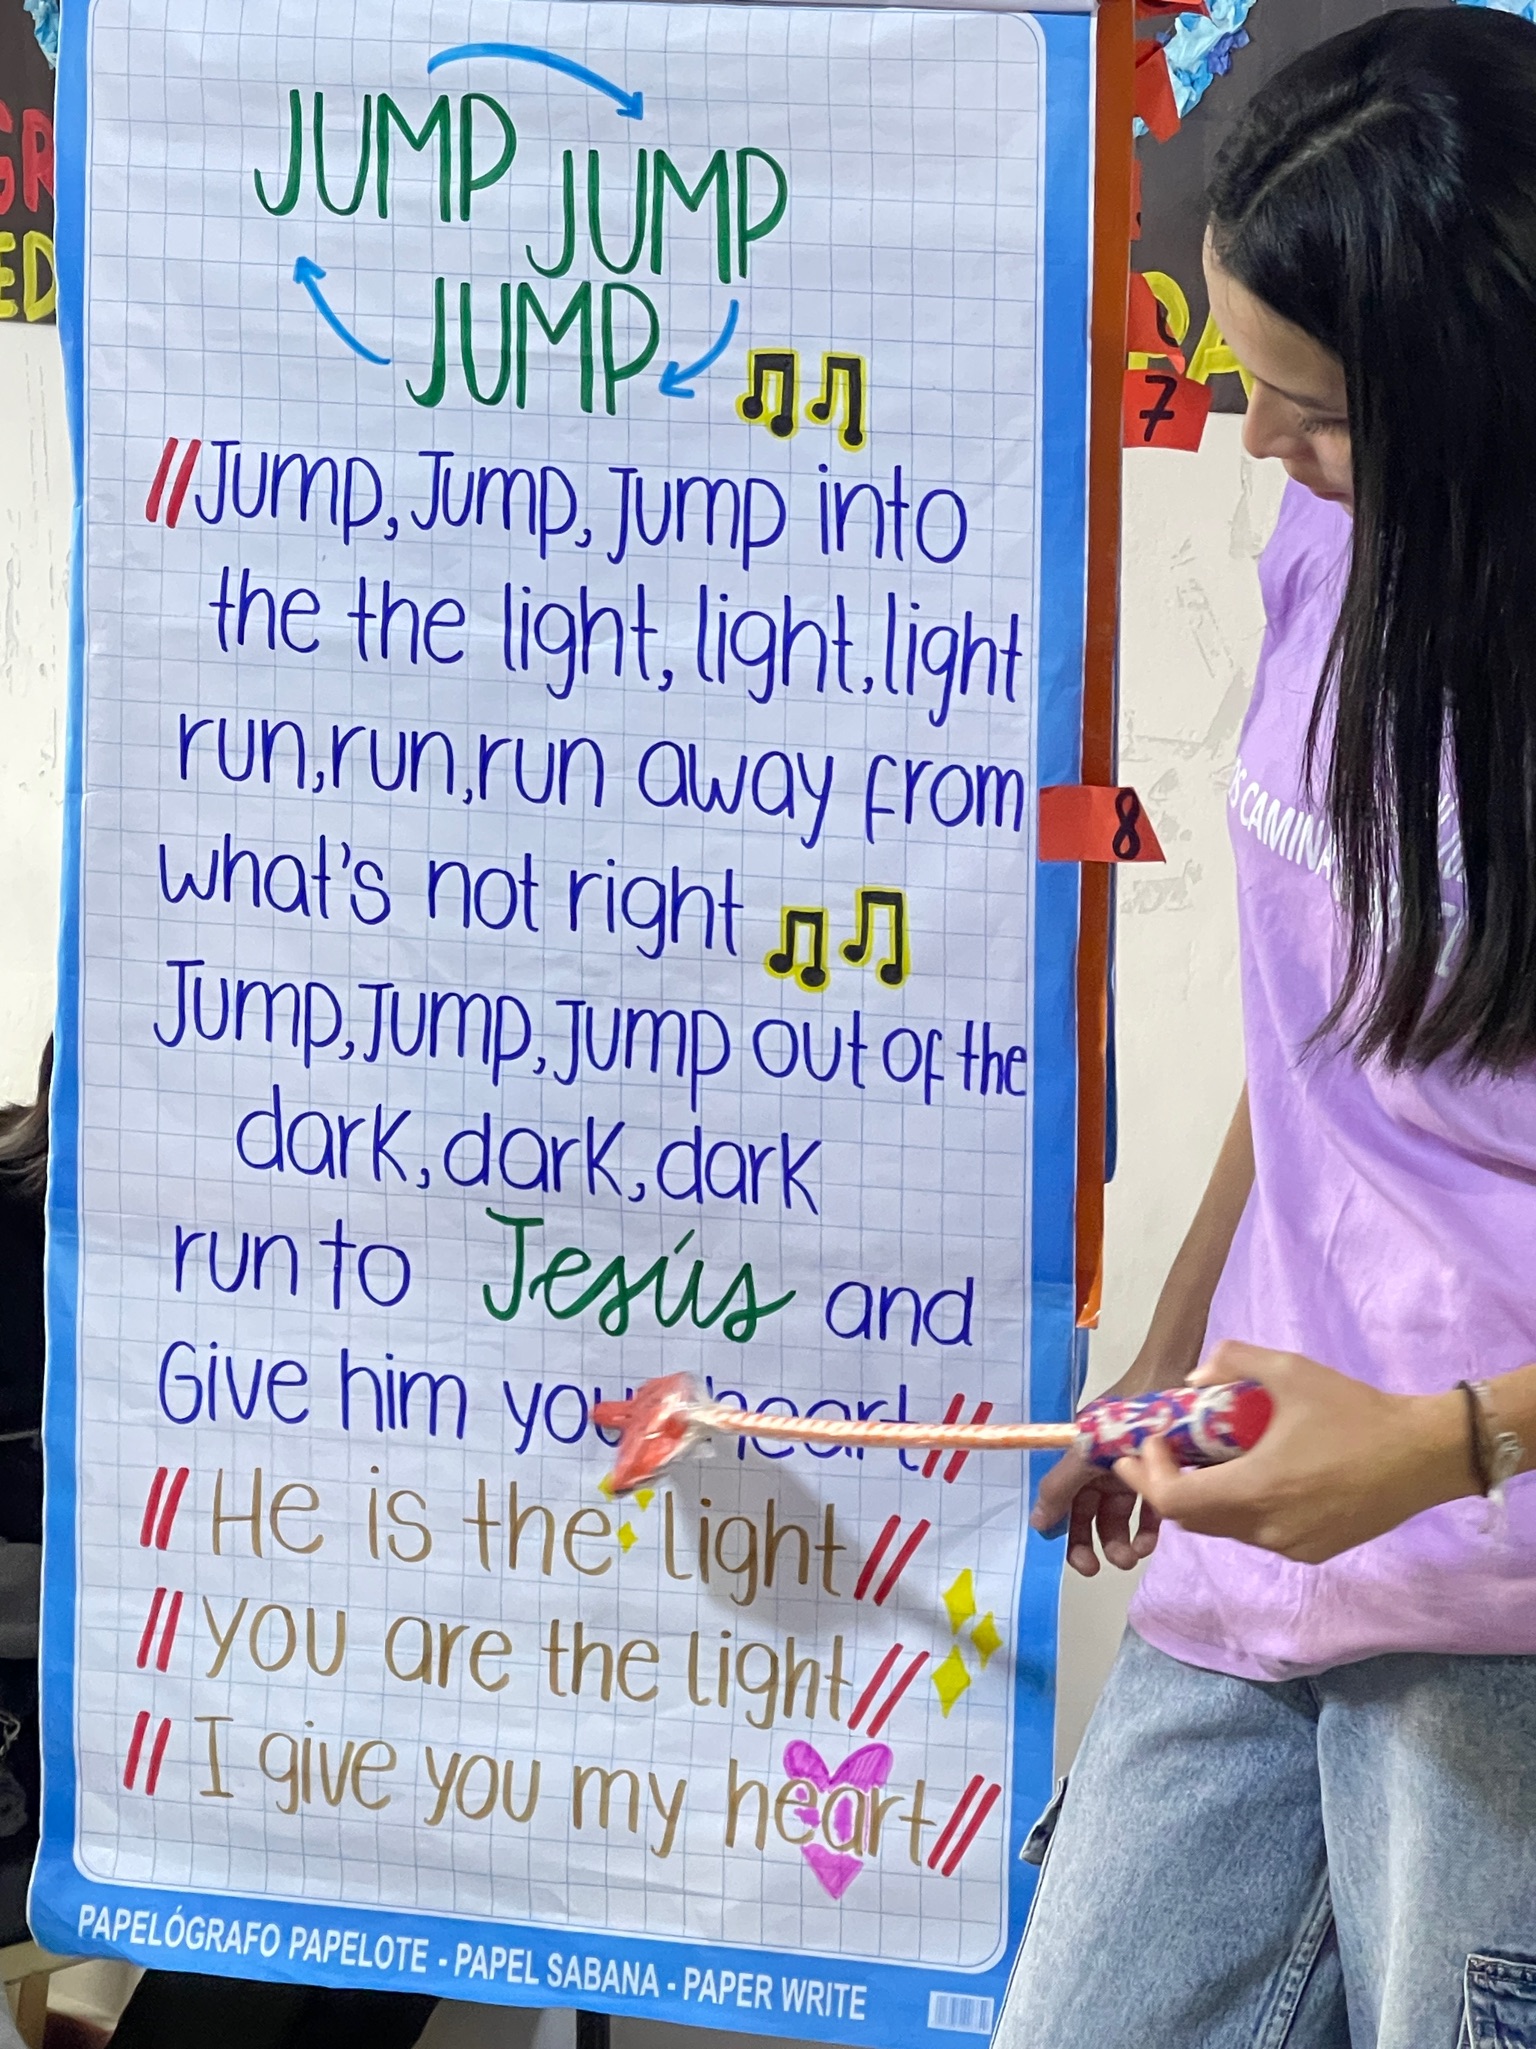 JUMP JUMP
JUMP
//Jump, Jump, Jump into
the the light, light, light
run, run, run away from
what's not right
Jump, Jump, Jump out of the
dark, dark, dark
run to Jesús and
Give him heart//
// He is the light//
// you are the light//
// I give you my heart//
PAPELÓGRAFO PAPELOTE - PAPEL SABANA - PAPER WRITE
7
8